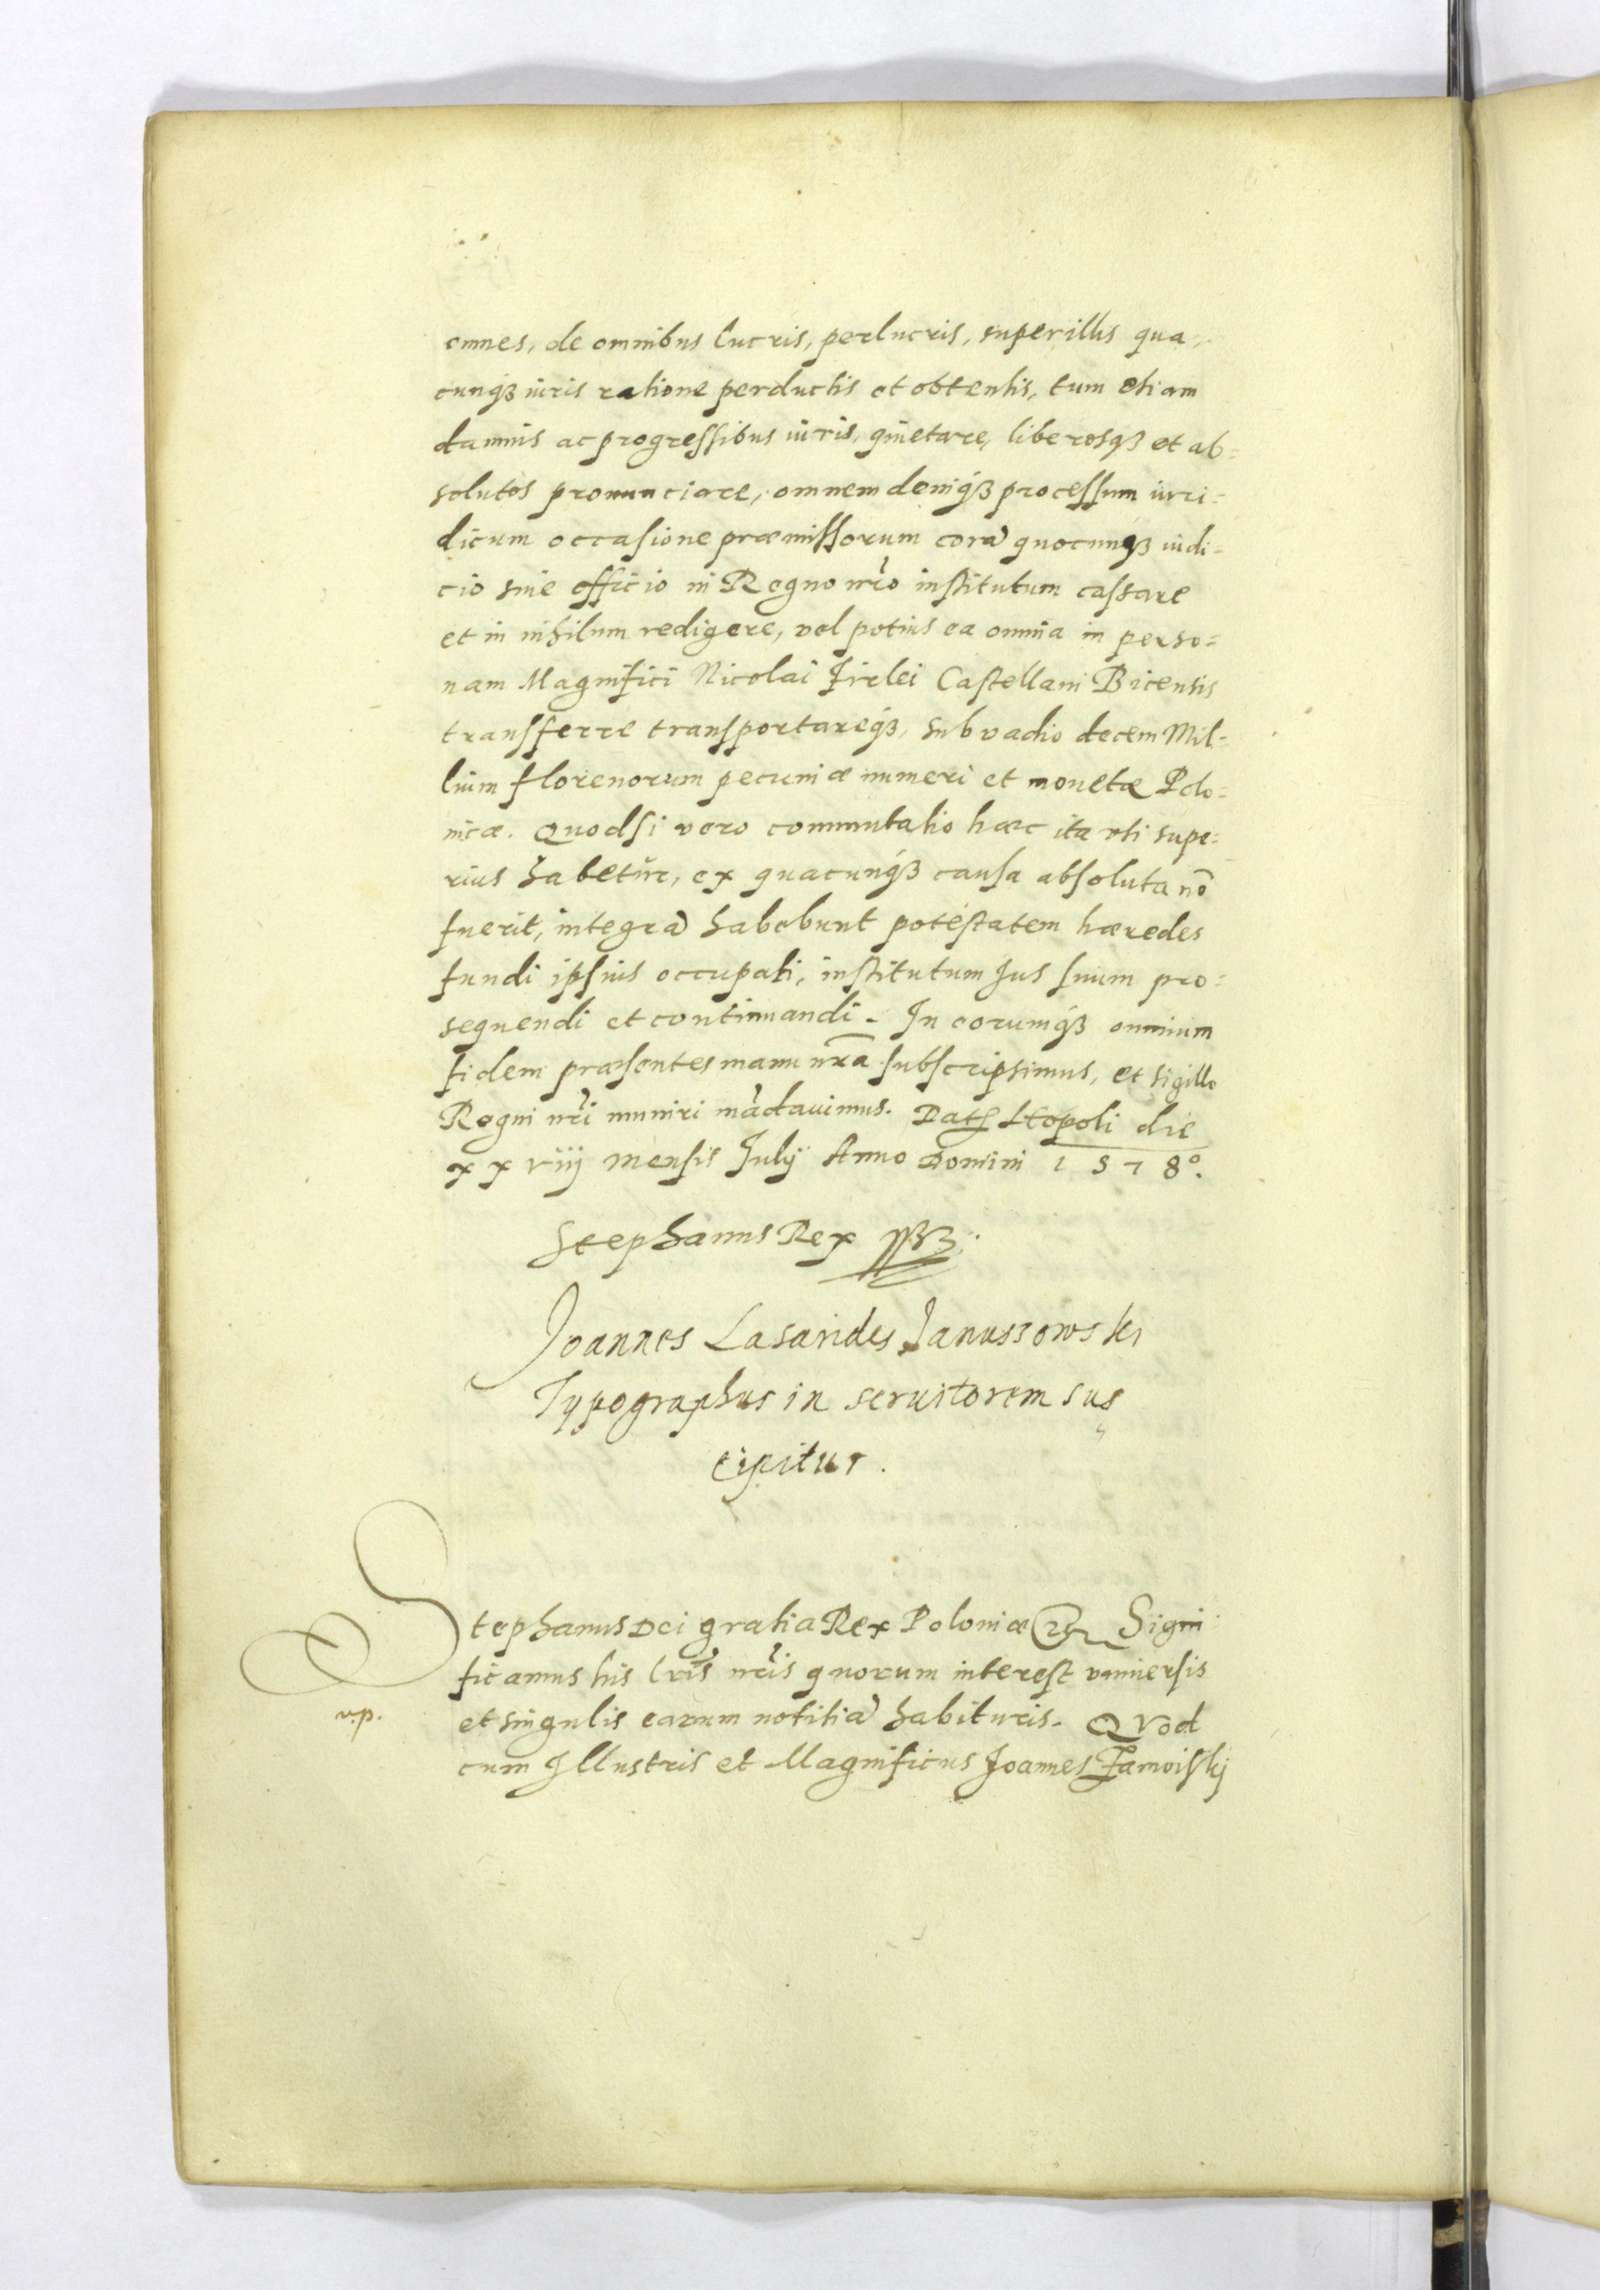 omnes, de omnibus lucris, perlucris, super illis qua-
cunq₃ iuris ratione perductis et obtentis, tum etiam
damnis ac progressibus iuris, quietare, liberosq₃ et ab=
solutos pronunciare, omnem deniq₃ processum iuri=
dicum occasione præmissorum corã quocunq₃ iudi=
cio siue officio in Regno nr̃o institutum cassare
et in nihilum redigere, vel potius ea omnia in perso=
nam Magnifici Nicolai Firlei Castellani Bicensis
transferre transportareq₃, sub vadio decem Mil=
lium florenorum pecuniæ numeri et monetæ Polo=
nicæ. Quodsi vero commutatio hæc ita vti supe=
rius habetur, ex quacunq₃ causa absoluta nõ
fuerit, integrã habebunt potestatem hæredes
fundi ipsius occupati, institutum Jus suum pro=
sequendi et continuandi. In eorumq₃ omnium
fidem præsentes manu nr̃a subscripsimus, et sigillo
Regni nr̃i muniri mãdauimus. Dat Lẽopoli die
xxviij mensis Julij Anno Domini 1578º.
Stephanus Rex
Joannes Lasarides Janussowski
Typographus in seruitorem sus
cipitur.
Stephanus Dei gratia Rex Poloniæ &c Signi
ficamus his lr̃is nr̃is quorum interest vniuersis
v.p.
et singulis earum notitiã habituris. Quod
cum Illustris et Magnificus Joannes Zamoiskj